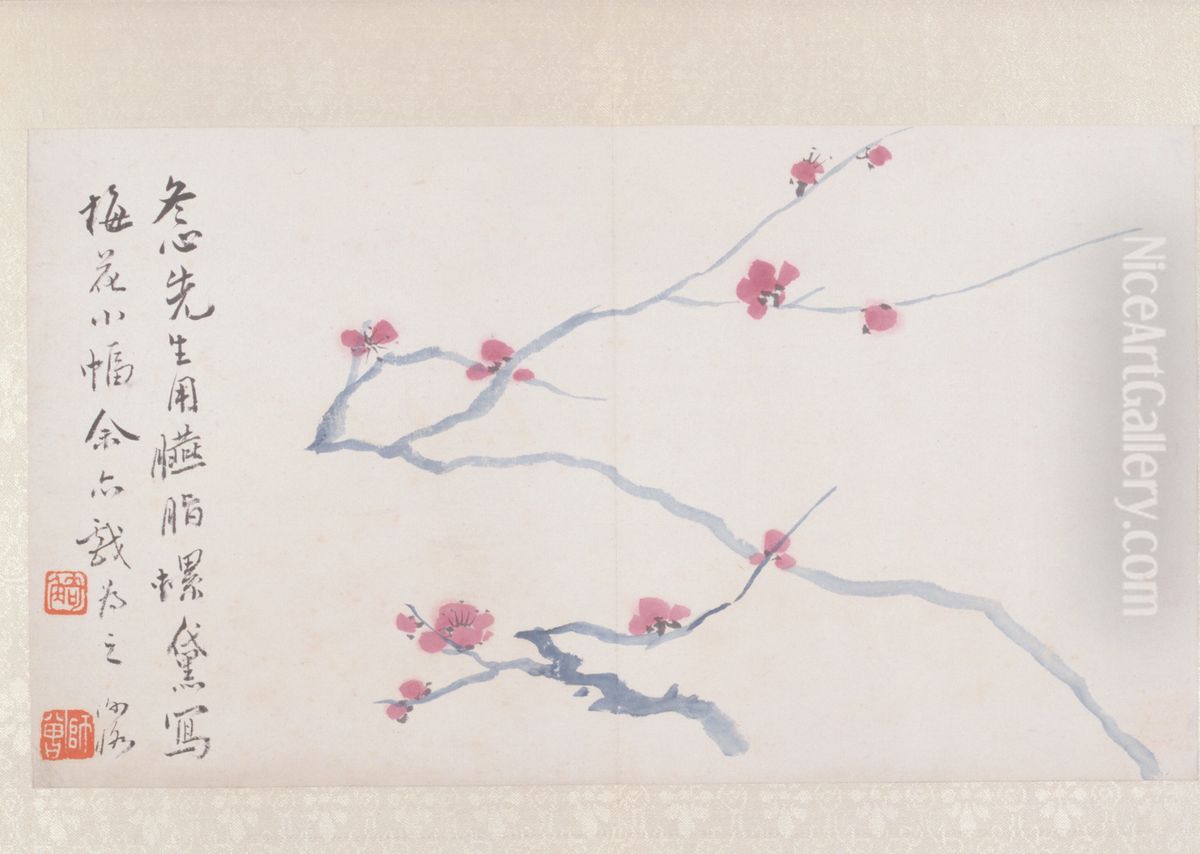 冬心先生用臙脂螺黛寫
梅花小幅余亦戲為之
師曾
NiceArtGallery.com